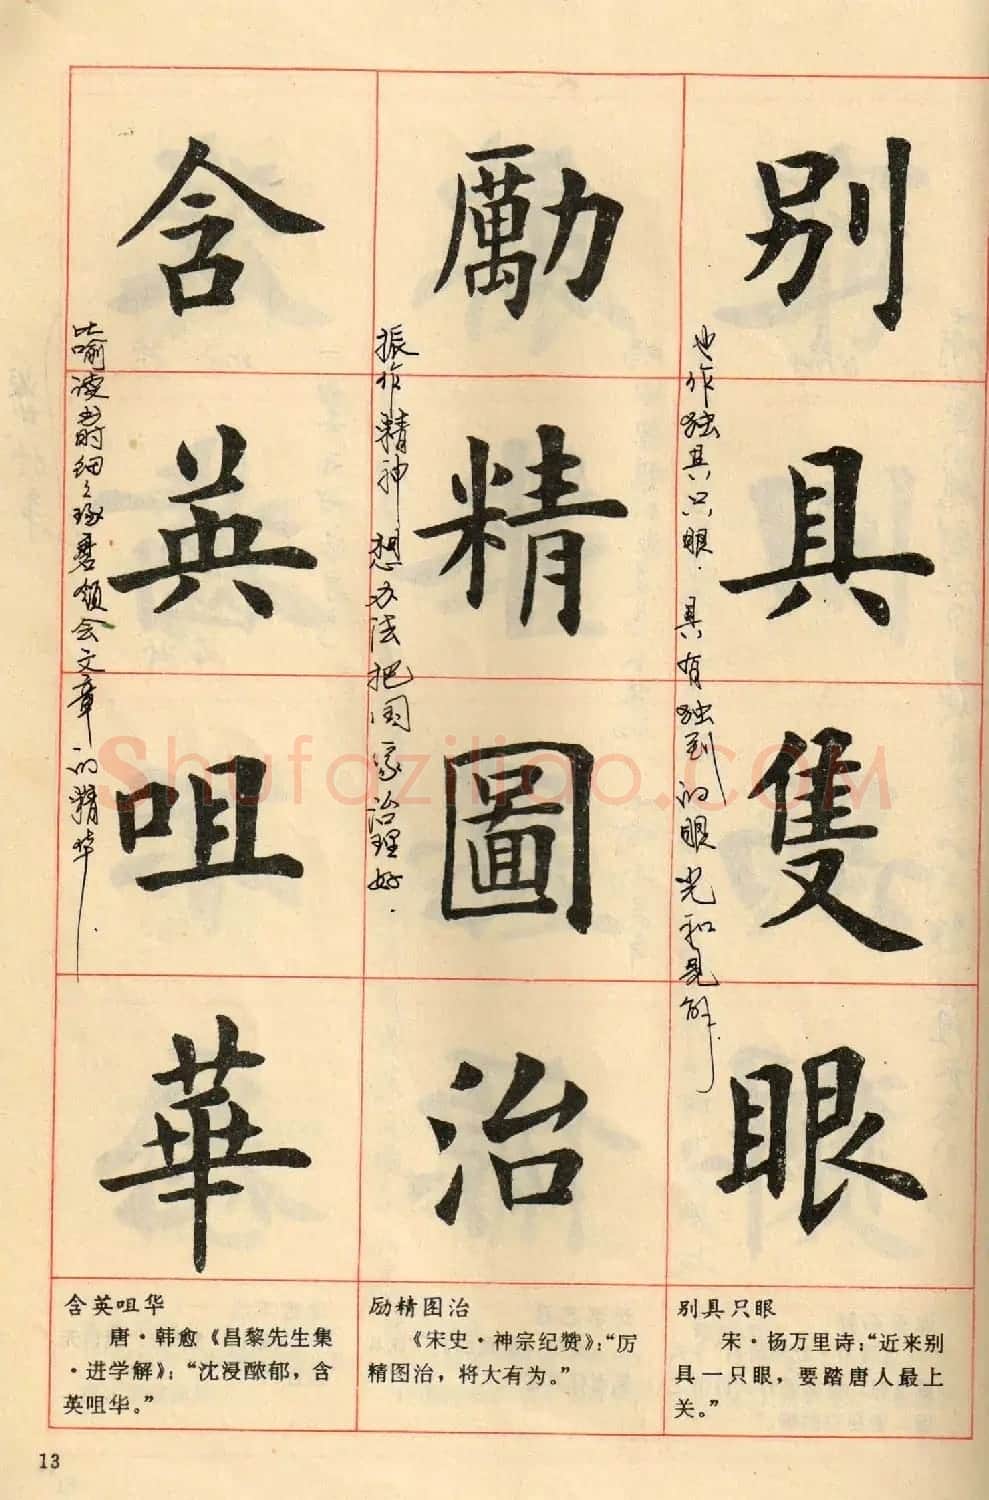 別具隻眼
也作独具只眼．具有独到的眼光和见解．
勵精圖治
振作精神 想办法把国家治理好．
含英咀華
比喻读书时细细琢磨领会文章的精华．
别具只眼
宋·杨万里诗：“近来别
具一只眼，要踏唐人最上
关。”
励精图治
《宋史·神宗纪赞》：“厉
精图治，将大有为。”
含英咀华
唐·韩愈《昌黎先生集
·进学解》：“沈浸酞郁，含
英咀华。”
13
Shufaziliao.com